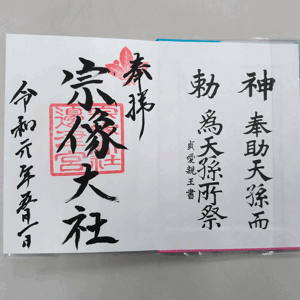 神勅
奉助天孫而
為天孫所祭
貞愛親王書
奉拝
宗像大社
令和元年五月一日